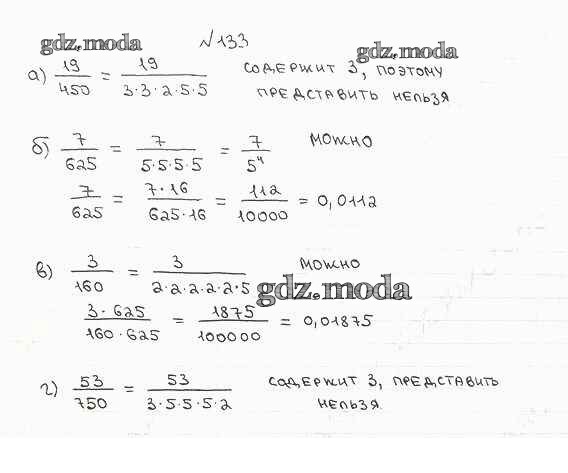 gdz.moda
№133
gdz.moda
а) 19/450 = 19/3·3·2·5·5 СОДЕРЖИТ 3, ПОЭТОМУ
ПРЕДСТАВИТЬ НЕЛЬЗЯ
б) 7/625 = 7/5·5·5·5 = 7/5⁴ МОЖНО
7/625 = 7·16/625·16 = 112/10000 = 0,0112
в) 3/160 = 3/2·2·2·2·2·5 МОЖНО
gdz.moda
3·625/160·625 = 1875/100000 = 0,01875
г) 53/750 = 53/3·5·5·5·2 СОДЕРЖИТ 3, ПРЕДСТАВИТЬ
НЕЛЬЗЯ.